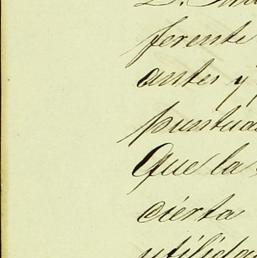 ferente
antes y
puntua
Que la
cierta
utilida